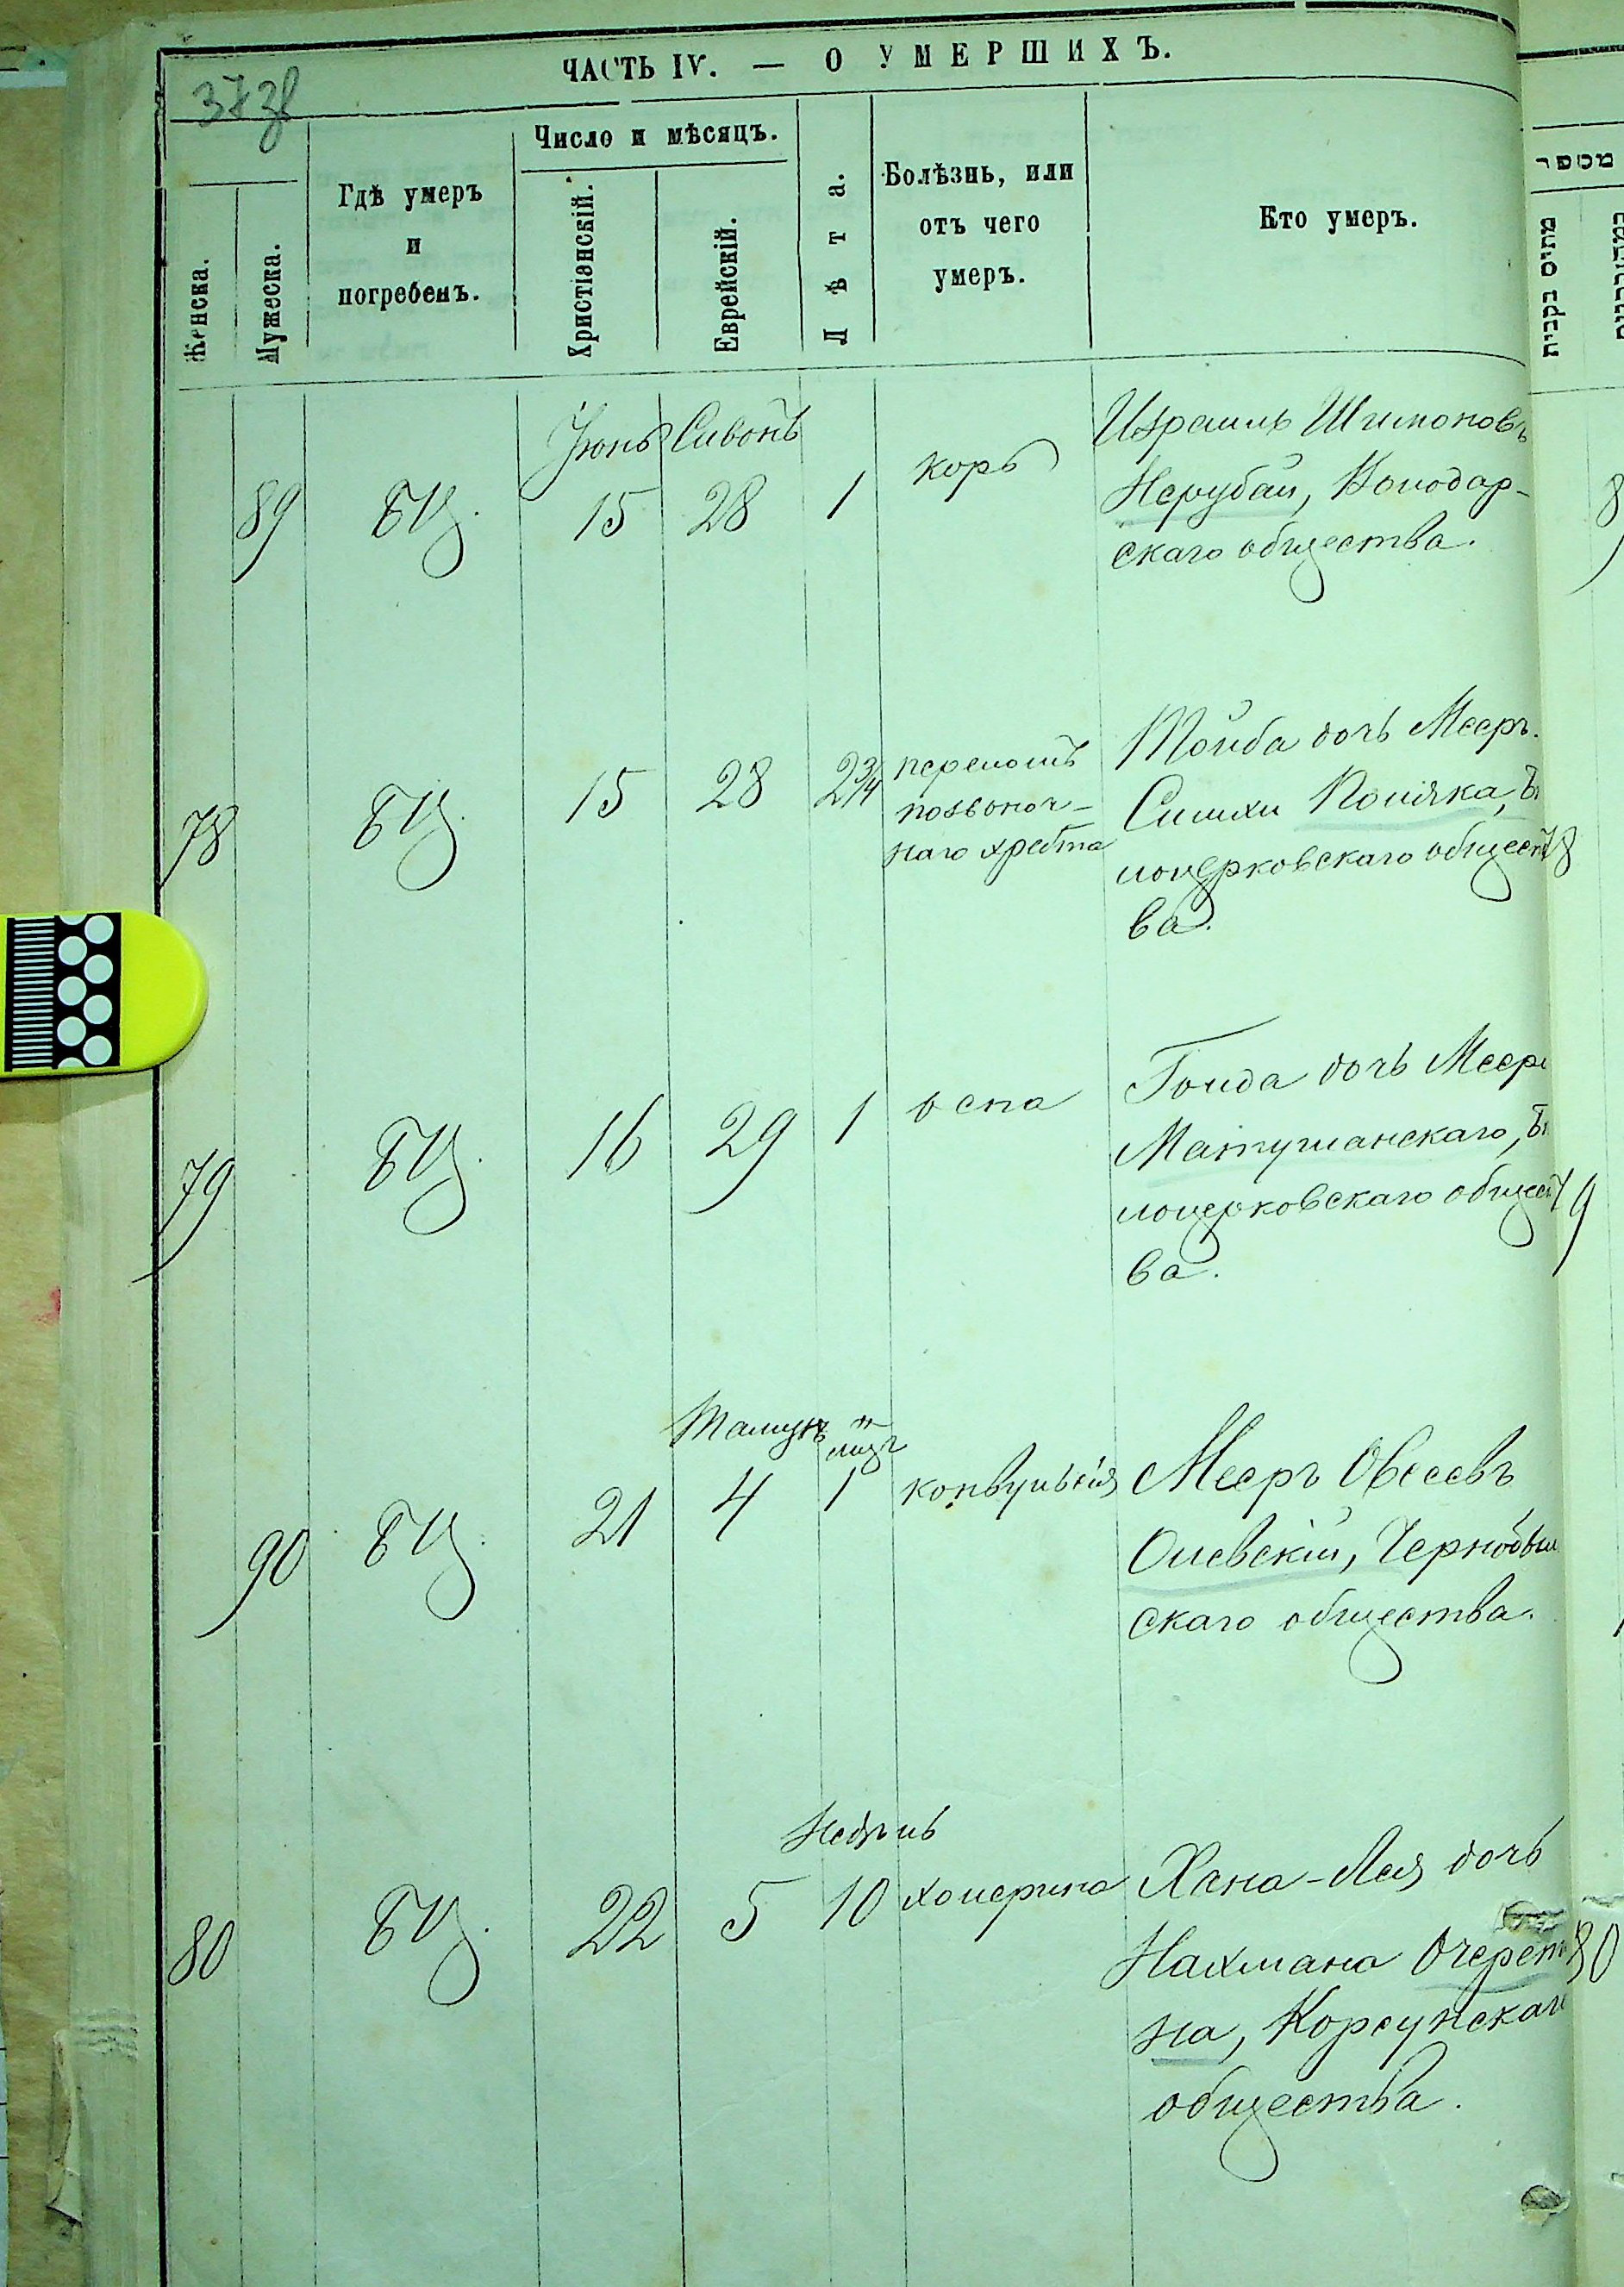 ЧАСТЬ IV. — О УМЕРШИХЪ.
373
Женска.
Мужеска.
Гдѣ умеръ
и
погребенъ.
Число и мѣсяцъ.
Христіанскій.
Еврейскій.
Лѣта.
Болѣзнь, или
отъ чего
умеръ.
Кто умеръ.
מספר
מתים נקבות
Іюнь Сивонъ
89 БЦ. 15 28 1 корь
Израиль Шимоновъ
Нерубай, Володар-
скаго общества.
78 БЦ. 15 28 2 3/4
переломъ
позвоноч-
наго хребта
Тойба дочь Меера
Симхи Поляка, Бѣ
лоцерковскаго общест
ва.
78
79 БЦ. 16 29 1 оспа
Голда дочь Меера
Матушанскаго, Бѣ
лоцерковскаго общест
ва.
79
Тамузъ
90 БЦ. 21 4 1 конвульсія
Мееръ Овсеевъ
Олевскій, Чернобыл
скаго общества.
недѣль
80 БЦ. 22 5 10 холерина
Хана-Лея дочь
Нахмана Очерет
на, Корсунскаго
общества.
80